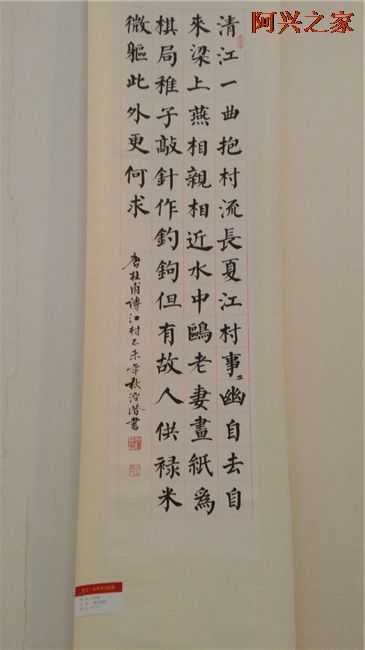 阿兴之家
清江一曲抱村流長夏江村事〻幽自去自
來梁上燕相親相近水中鷗老妻畫紙爲
棋局稚子敲針作釣鉤但有故人供禄米
微軀此外更何求
唐杜甫詩江村乙未年秋書